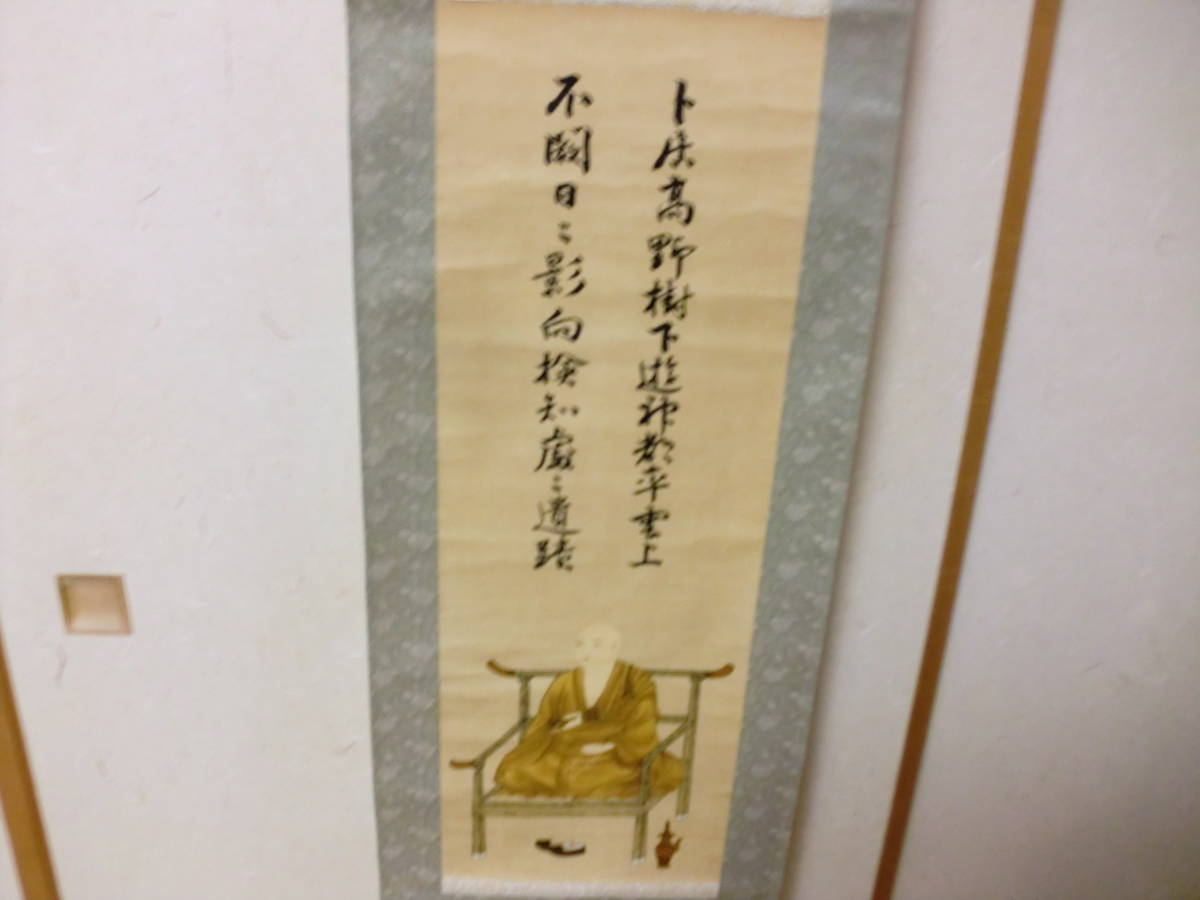 卜居高野樹下遊神都率雲上
不闕日々影向檢知處々遺跡